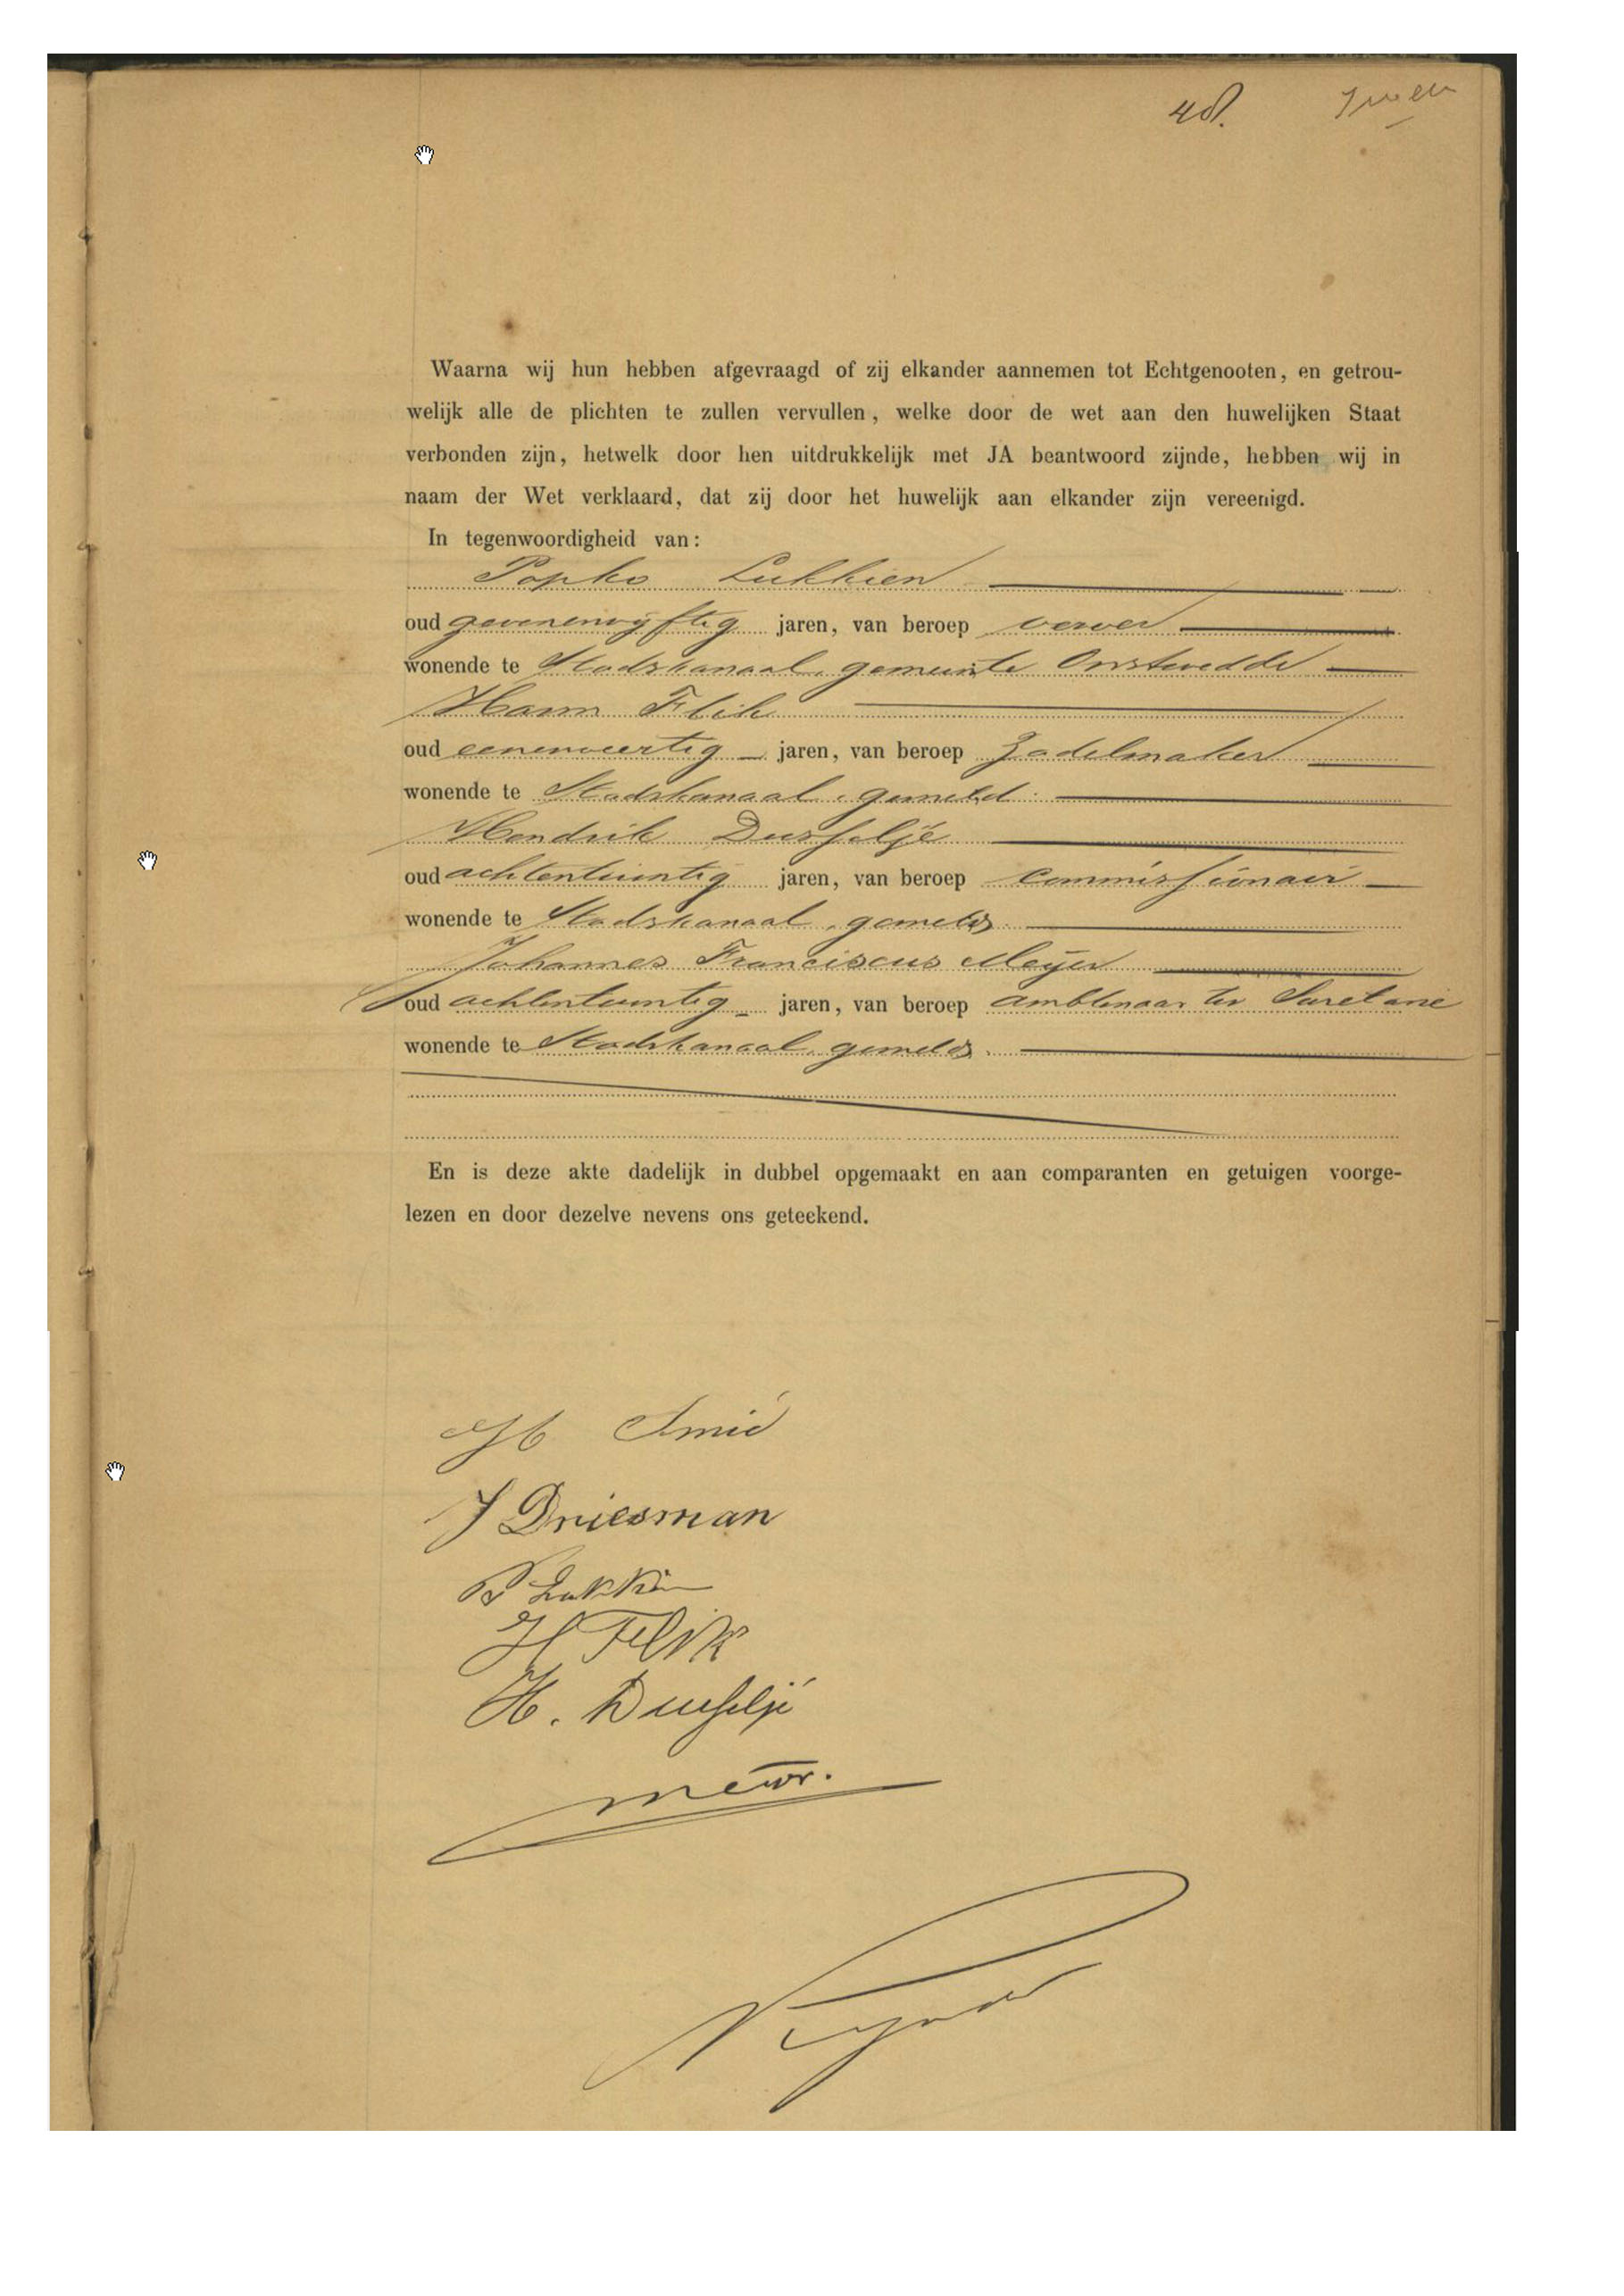 48.
Waarna wij hun hebben afgevraagd of zij elkander aannemen tot Echtgenooten, en getrou-
welijk alle de plichten te zullen vervullen, welke door de wet aan den huwelijken Staat
verbonden zijn, hetwelk door hen uitdrukkelijk met JA beantwoord zijnde, hebben wij in
naam der Wet verklaard, dat zij door het huwelijk aan elkander zijn vereenigd.
In tegenwoordigheid van:
Popko Lukkien
oud zevenenvijftig jaren, van beroep verver
wonende te Stadskanaal, gemeente Onstwedde
Harm Flik
oud eenenveertig jaren, van beroep Zadelmaker
wonende te Stadskanaal, gemeld.
Hendrik Dusseljé
oud achtentwintig jaren, van beroep Commissionair
wonende te Stadskanaal, gemeld.
Johannes Franciscus Meijer
oud achtentwintig jaren, van beroep ambtenaar ter Secretarie
wonende te Stadskanaal, gemeld.
En is deze akte dadelijk in dubbel opgemaakt en aan comparanten en getuigen voorge-
lezen en door dezelve nevens ons geteekend.
H Smid
J Driesman
P Lukkien
H Flik
H. Dusseljé